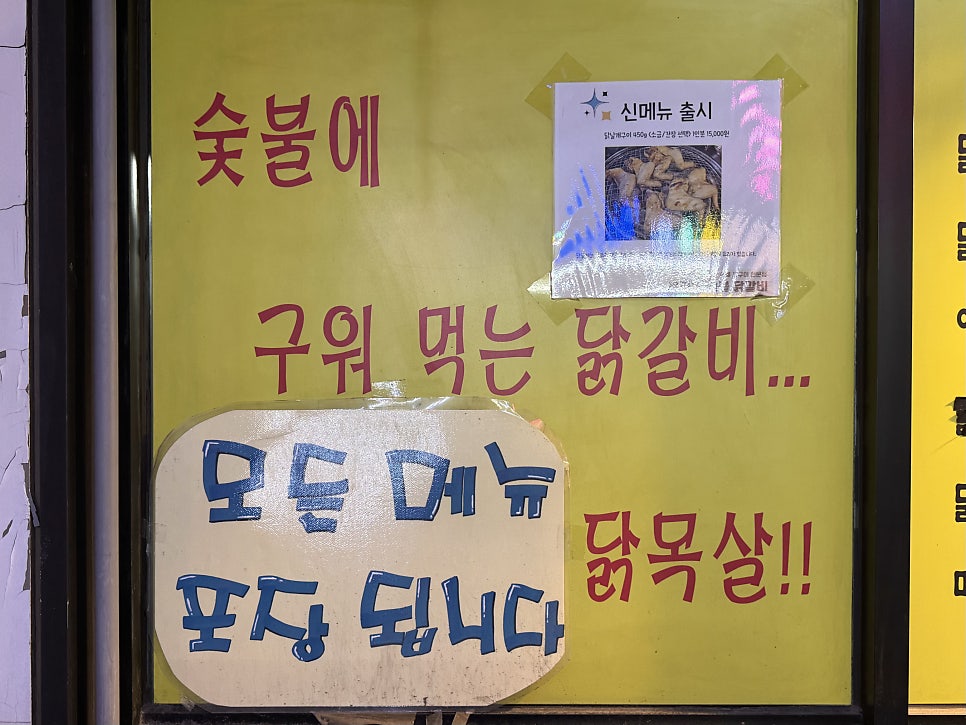 숯불에
신메뉴 출시
닭날개구이 450g <소금/간장 선택> 1인분 15,000원
닭갈비
구워 먹는 닭갈비...
모든 메뉴
포장 됩니다
닭목살!!